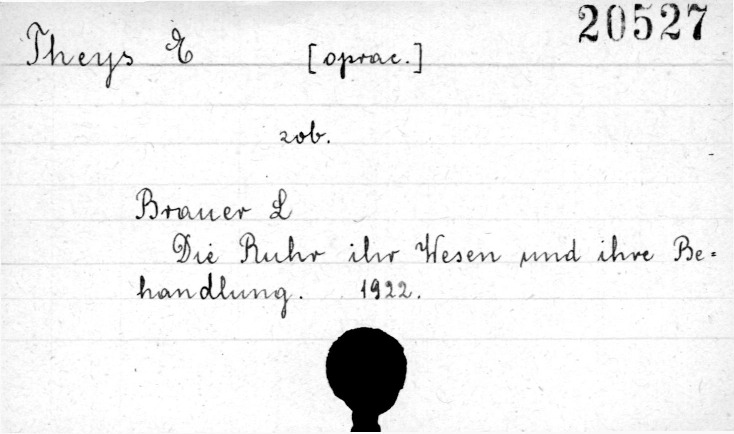 20527
Theys E [oprac.]
zob.
Brauer L
Die Ruhr ihr Wesen und ihre Be=
handlung. 1922.